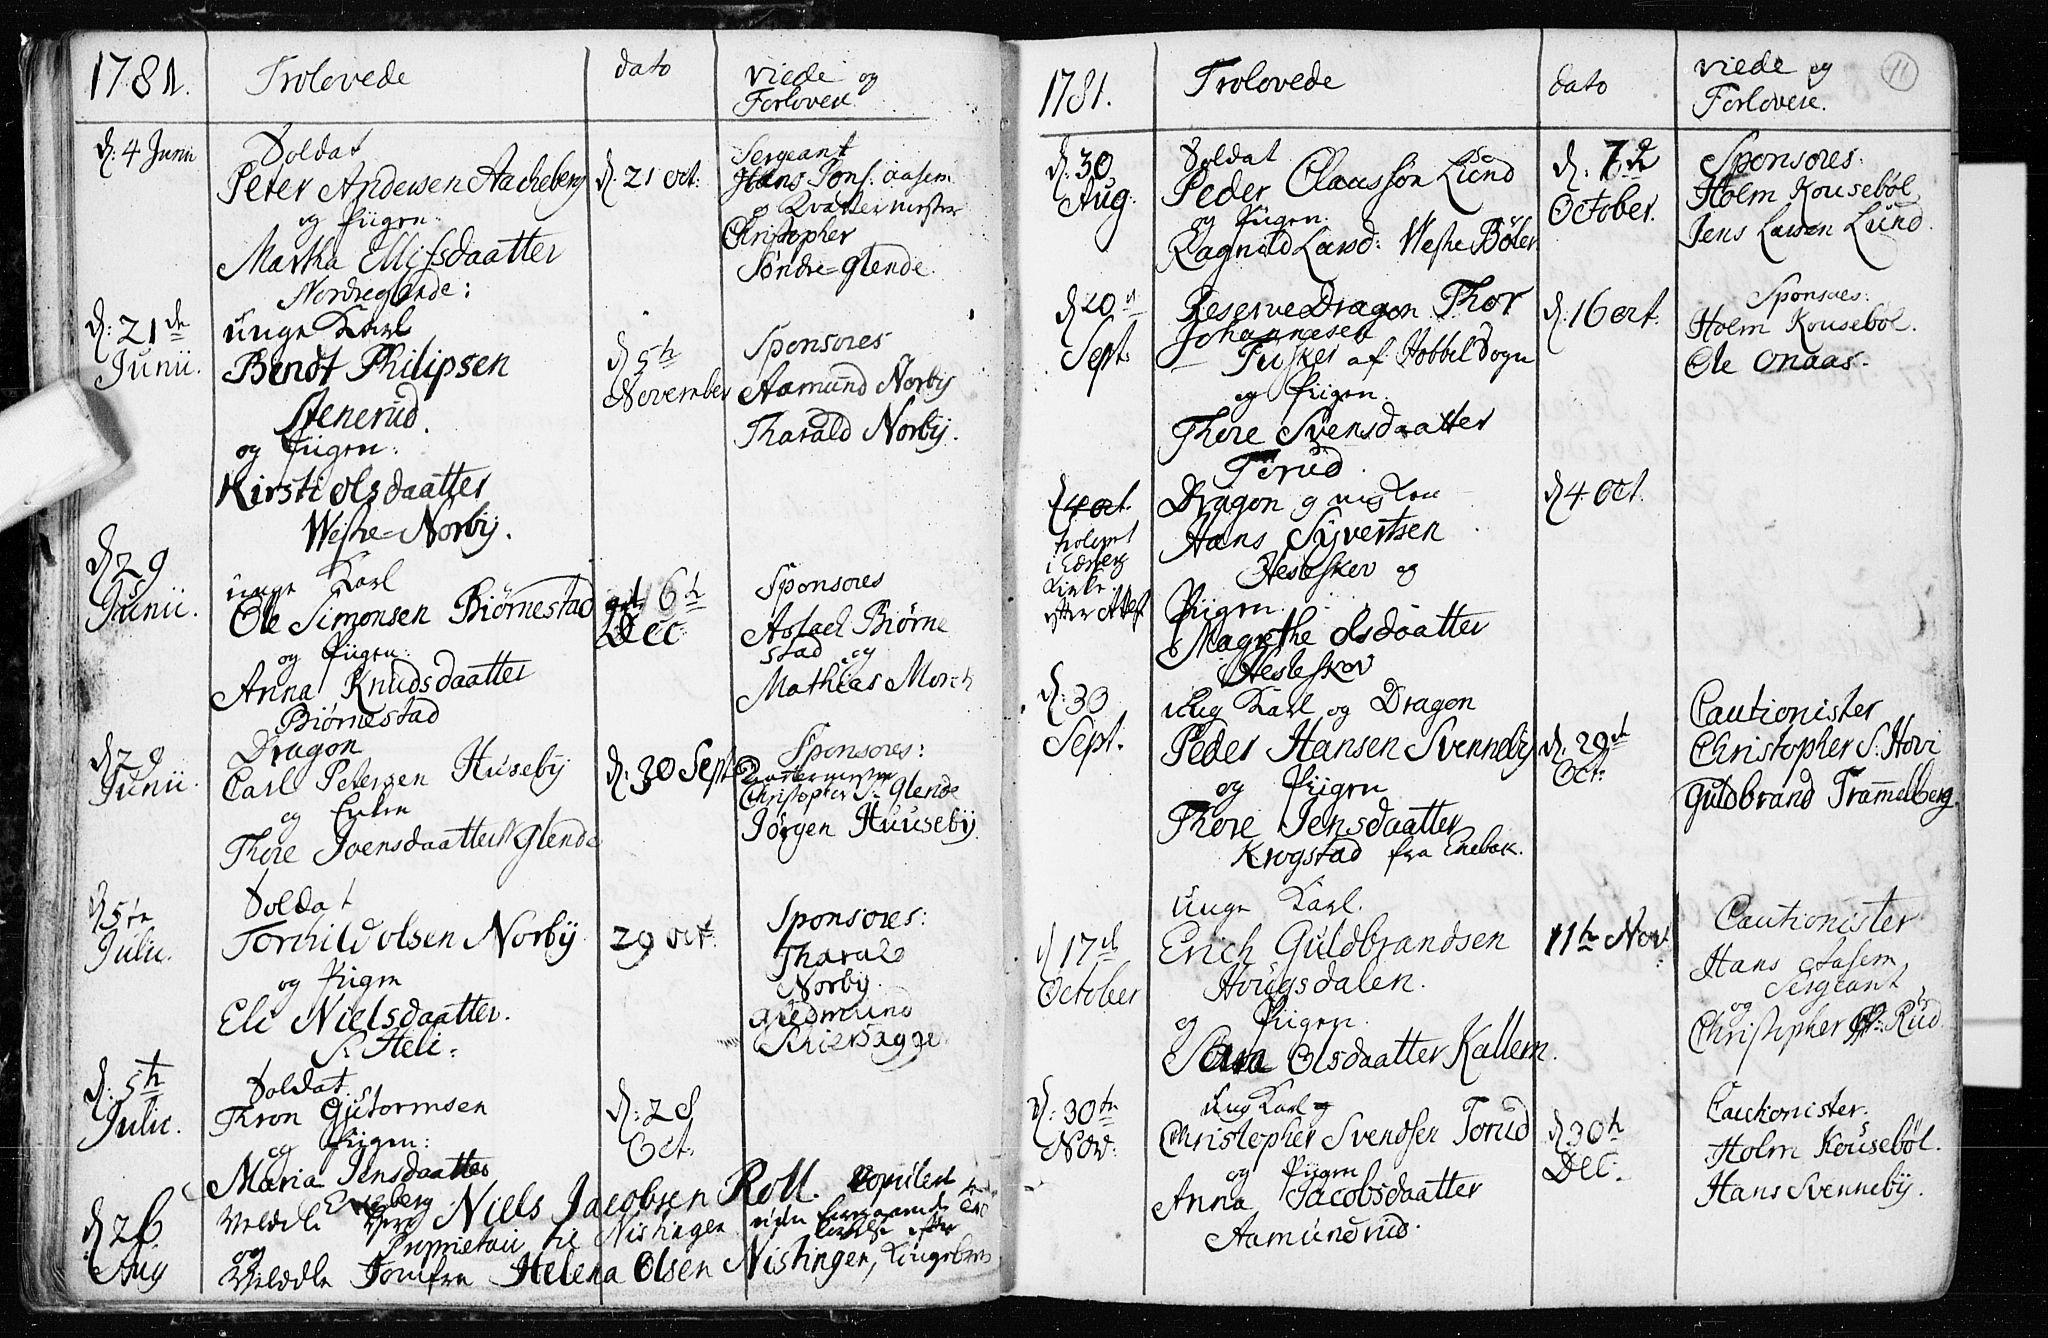 1781.
Trolovede
dato
viede og
Forlovere
d: 4 Junii
Soldat
Peter Andersen Aacheberg
og Piigen:
Martha Ellefsdaatter
Nordreglende:
d: 21 oct:
Sergeant
Hans Aasem
og Kvartermester
Christopher
Søndre=Glende.
d: 21de
Junii.
unge Karl
Bendt Philipsen
Stenerud.
og Piigen:
Kirsti olsdaatter
Westre=Norby.
d 5te
November
Sponsores
Aamund Norby
Tharald Norby.
d 29
Junii.
unge Karl
Ole Simonsen Biørnestad
og Piigen:
Anna Knudsdaatter
Biørnestad
6te
Dec
Sponsores
Aslack Biørne
stad og
Mathias Morch
d 29
Junii
Dragon
Carl Petersen Huseby
og Enken
Thore Joensdaatter Glende
d: 30 Sept
Sponsores:
Quartermester
Christopher Glende
Jørgen Huuseby.
d 5te
Julii.
Soldat
Torchild olsen Norby
og Piigen
Eli Nielsdaatter.
S: Heli:
29 oct:
Sponsores:
Tharald
Norby.
Aedmund
Schiersagge
d: 5te
Julii.
Soldat
Thron Gjutormsen
og Piigen:
Maria Jensdaatter
Eneberg
d: 28
Oct.
d 26
Aug
Velædle Herr Niels Jacobsen Roll. Copuleret
Proprietair til Nistingen
og
Velædle Jomfru Helena Olsen Nistingen,
1781.
Trolovede
dato
viede og
Forlovere.
11
d: 30
Aug:
Soldat
Peder Claussøn Lund
og Piigen.
Ragnild Larsd: Westre Bøler
d: 7de
October.
Sponsores:
Holm Kousebøl
Jens Larsen Lund.
d 20
Sept:
Reserve Dragon Thor
Johannesen
Tusker af Hobbel Sogn
og Piigen:
Thore Svensdaatter
Torud.
d. 16 oct.
Sponsores:
Holm Kousebøl.
Ole Onaas.
d 4 oct.
trolovet
i
Kirke
efter Attest
Dragon og
Hans Syvertsen
Hesleskov og
Piigen.
Magrethe olsdaatter
Hesleskov
d 4 Oct.
d: 30
Sept:
ung Karl og Dragon
Peder Hansen Svenneby
og Piigen
Thore Jensdaatter
Krogstad fra Enebak.
d. 29de
Oct:
Cautionister
Christopher S: Hovi
Guldbrand Trammelberg.
d 17de
October
unge Karl.
Erich Guldbrandsen
Hougsdalen.
og Piigen.
Sara Olsdaatter Kallem.
11te Nov:
Cautionister
Hans Aasem
Sergeant
og
Christopher Rud
d: 30te
Nov:
ung Karl
Christopher Svendsen Torud
og Piigen
Anna Jacobsdaatter
Aamundrud.
d 30te
Dec.
Cautionister.
Holm Kousebøl.
Hans Svenneby.